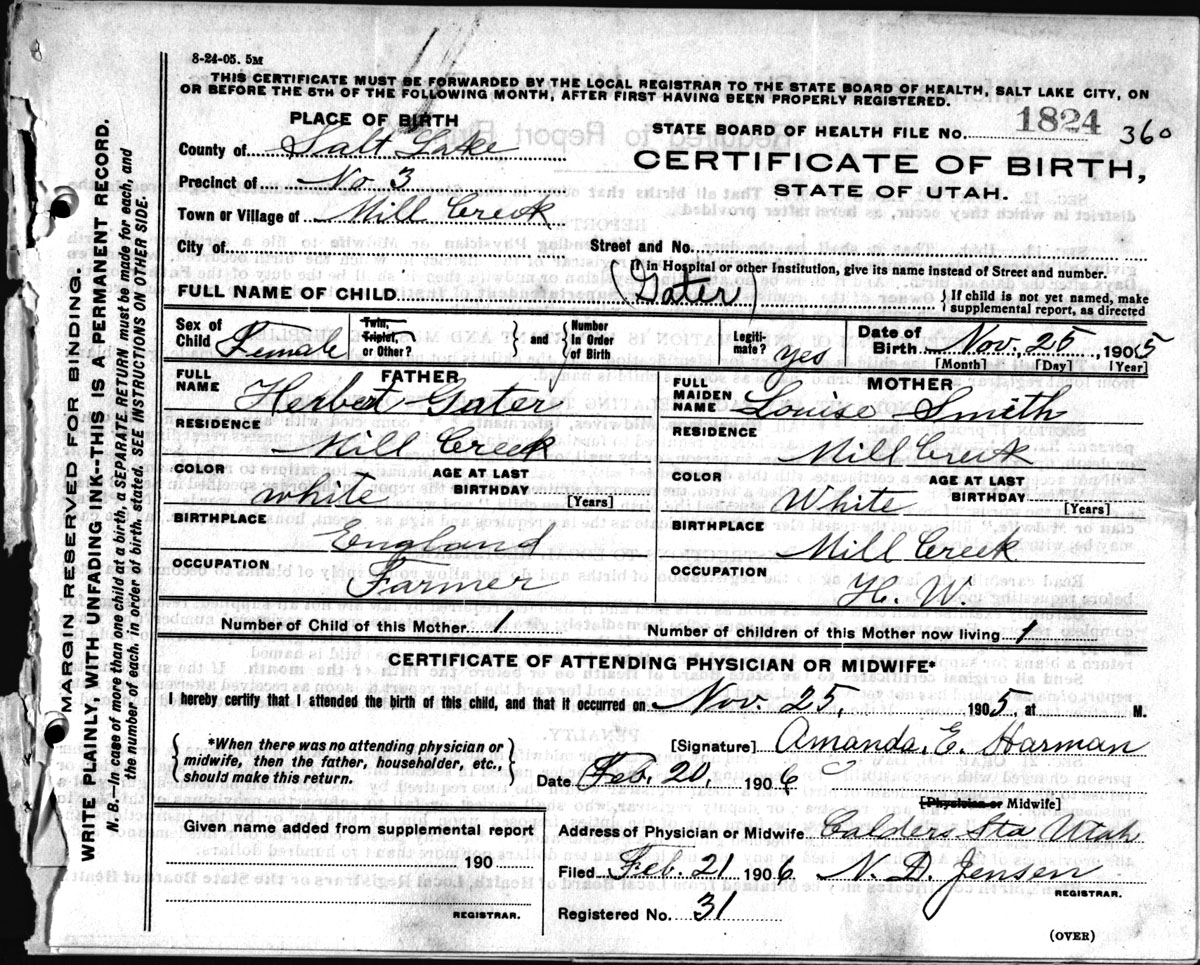 8-24-05. 5M
THIS CERTIFICATE MUST BE FORWARDED BY THE LOCAL REGISTRAR TO THE STATE BOARD OF HEALTH, SALT LAKE CITY, ON
OR BEFORE THE 5TH OF THE FOLLOWING MONTH, AFTER FIRST HAVING BEEN PROPERLY REGISTERED.
PLACE OF BIRTH
STATE BOARD OF HEALTH FILE NO. 1824 360
County of Salt Lake
CERTIFICATE OF BIRTH,
STATE OF UTAH.
Precinct of No 3
Town or Village of Mill Creek
City of
Street and No.
If in Hospital or other Institution, give its name instead of Street and number.
FULL NAME OF CHILD (Gater)
If child is not yet named, make
supplemental report, as directed
Sex of Child Female
Twin, Triplet, or Other?
and
Number In Order of Birth
Legiti-mate? yes
Date of Birth Nov. 25, 1905
[Month] [Day] [Year]
FATHER
FULL NAME Herbert Gater
RESIDENCE Mill Creek
COLOR white
AGE AT LAST BIRTHDAY [Years]
BIRTHPLACE England
OCCUPATION Farmer
MOTHER
FULL MAIDEN NAME Louise Smith
RESIDENCE Mill Creek
COLOR White
AGE AT LAST BIRTHDAY [Years]
BIRTHPLACE Mill Creek
OCCUPATION H. W.
Number of Child of this Mother 1
Number of children of this Mother now living 1
CERTIFICATE OF ATTENDING PHYSICIAN OR MIDWIFE*
I hereby certify that I attended the birth of this child, and that it occurred on Nov. 25, 1905, at M.
*When there was no attending physician or
midwife, then the father, householder, etc.,
should make this return.
[Signature] Amanda, E. Harman
Date Feb. 20, 1906
[Physician or Midwife]
Given name added from supplemental report
190
REGISTRAR.
Address of Physician or Midwife Calders Sta Utah
Filed Feb. 21 1906 N. D. Jensen
REGISTRAR.
Registered No. 31
(OVER)
MARGIN RESERVED FOR BINDING.
WRITE PLAINLY, WITH UNFADING INK--THIS IS A PERMANENT RECORD.
N. B.—In case of more than one child at a birth, a SEPARATE RETURN must be made for each, and
the number of each, in order of birth, stated. SEE INSTRUCTIONS ON OTHER SIDE.